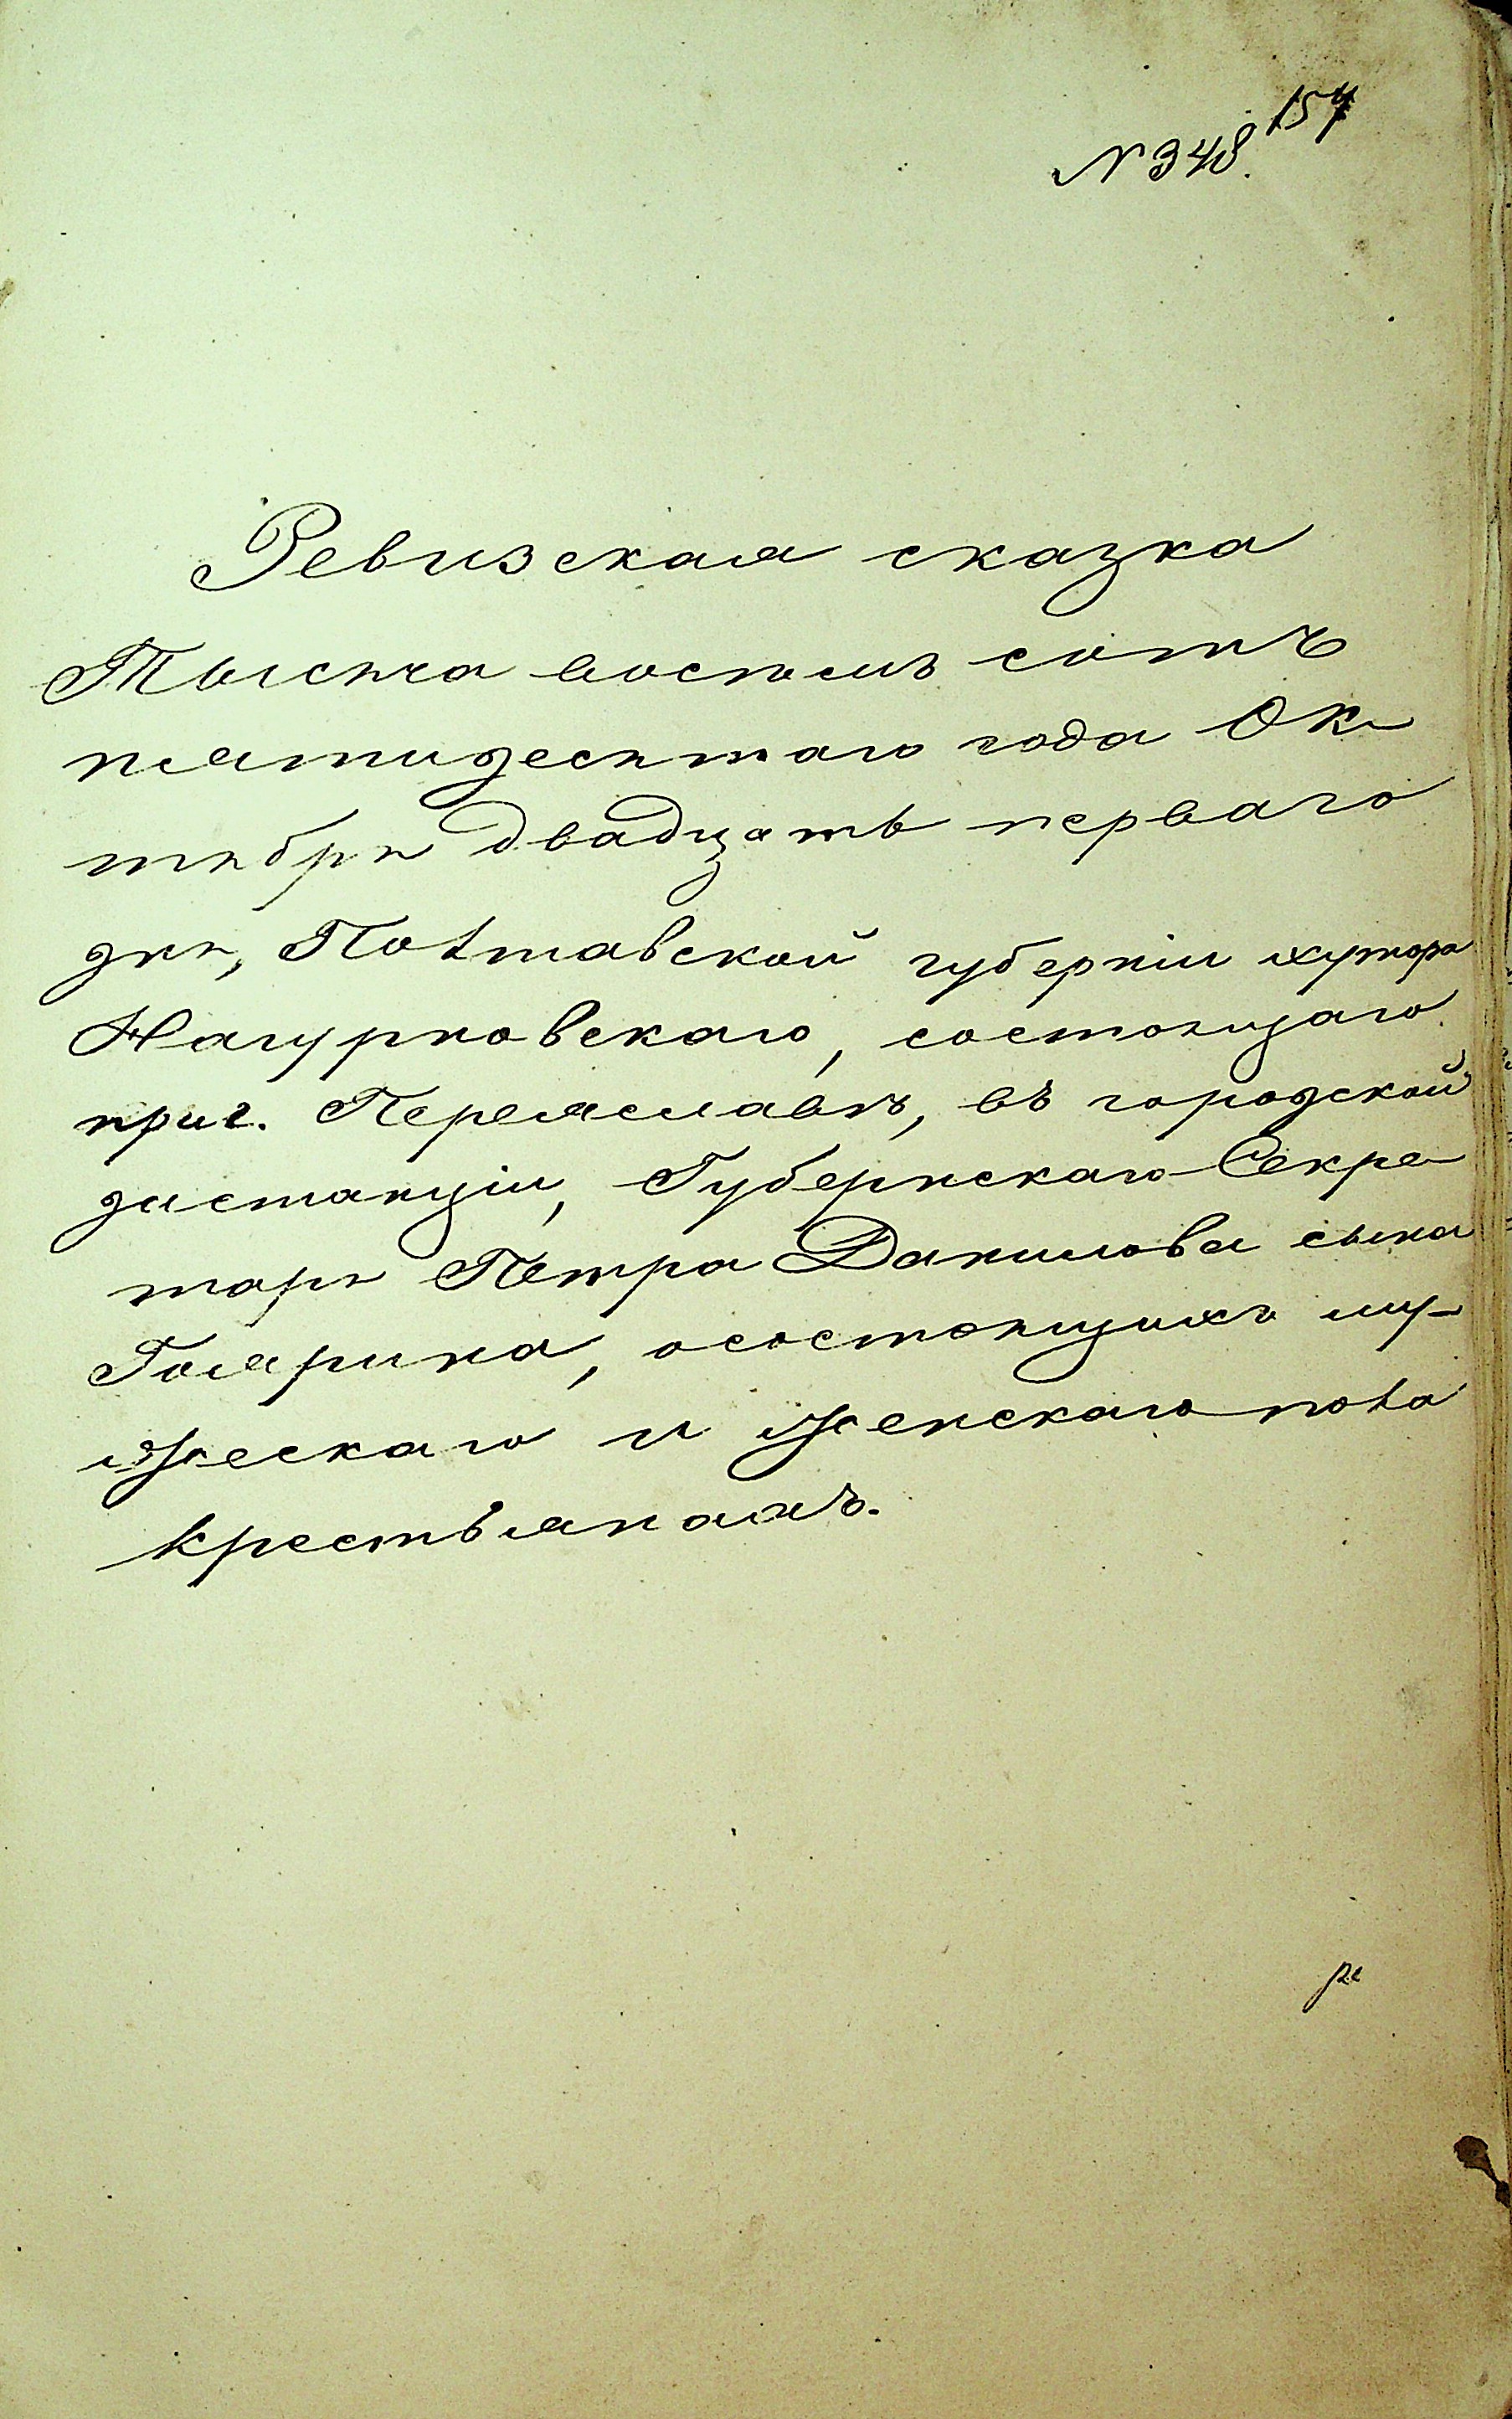 157
N 348.
Ревизская сказка
Тысяча восемь сотъ
пятидесятаго года Ок-
тября двадцать перваго
дня, Полтавской губерніи хутора
Нагурновскаго, состоящаго
при г. Переяславѣ, въ городской
дистанціи, Губернскаго Секре-
таря Петра Данилова сына
Гоярина, о состоящихъ му-
жескаго и женскаго пола
крестьянахъ.
ре